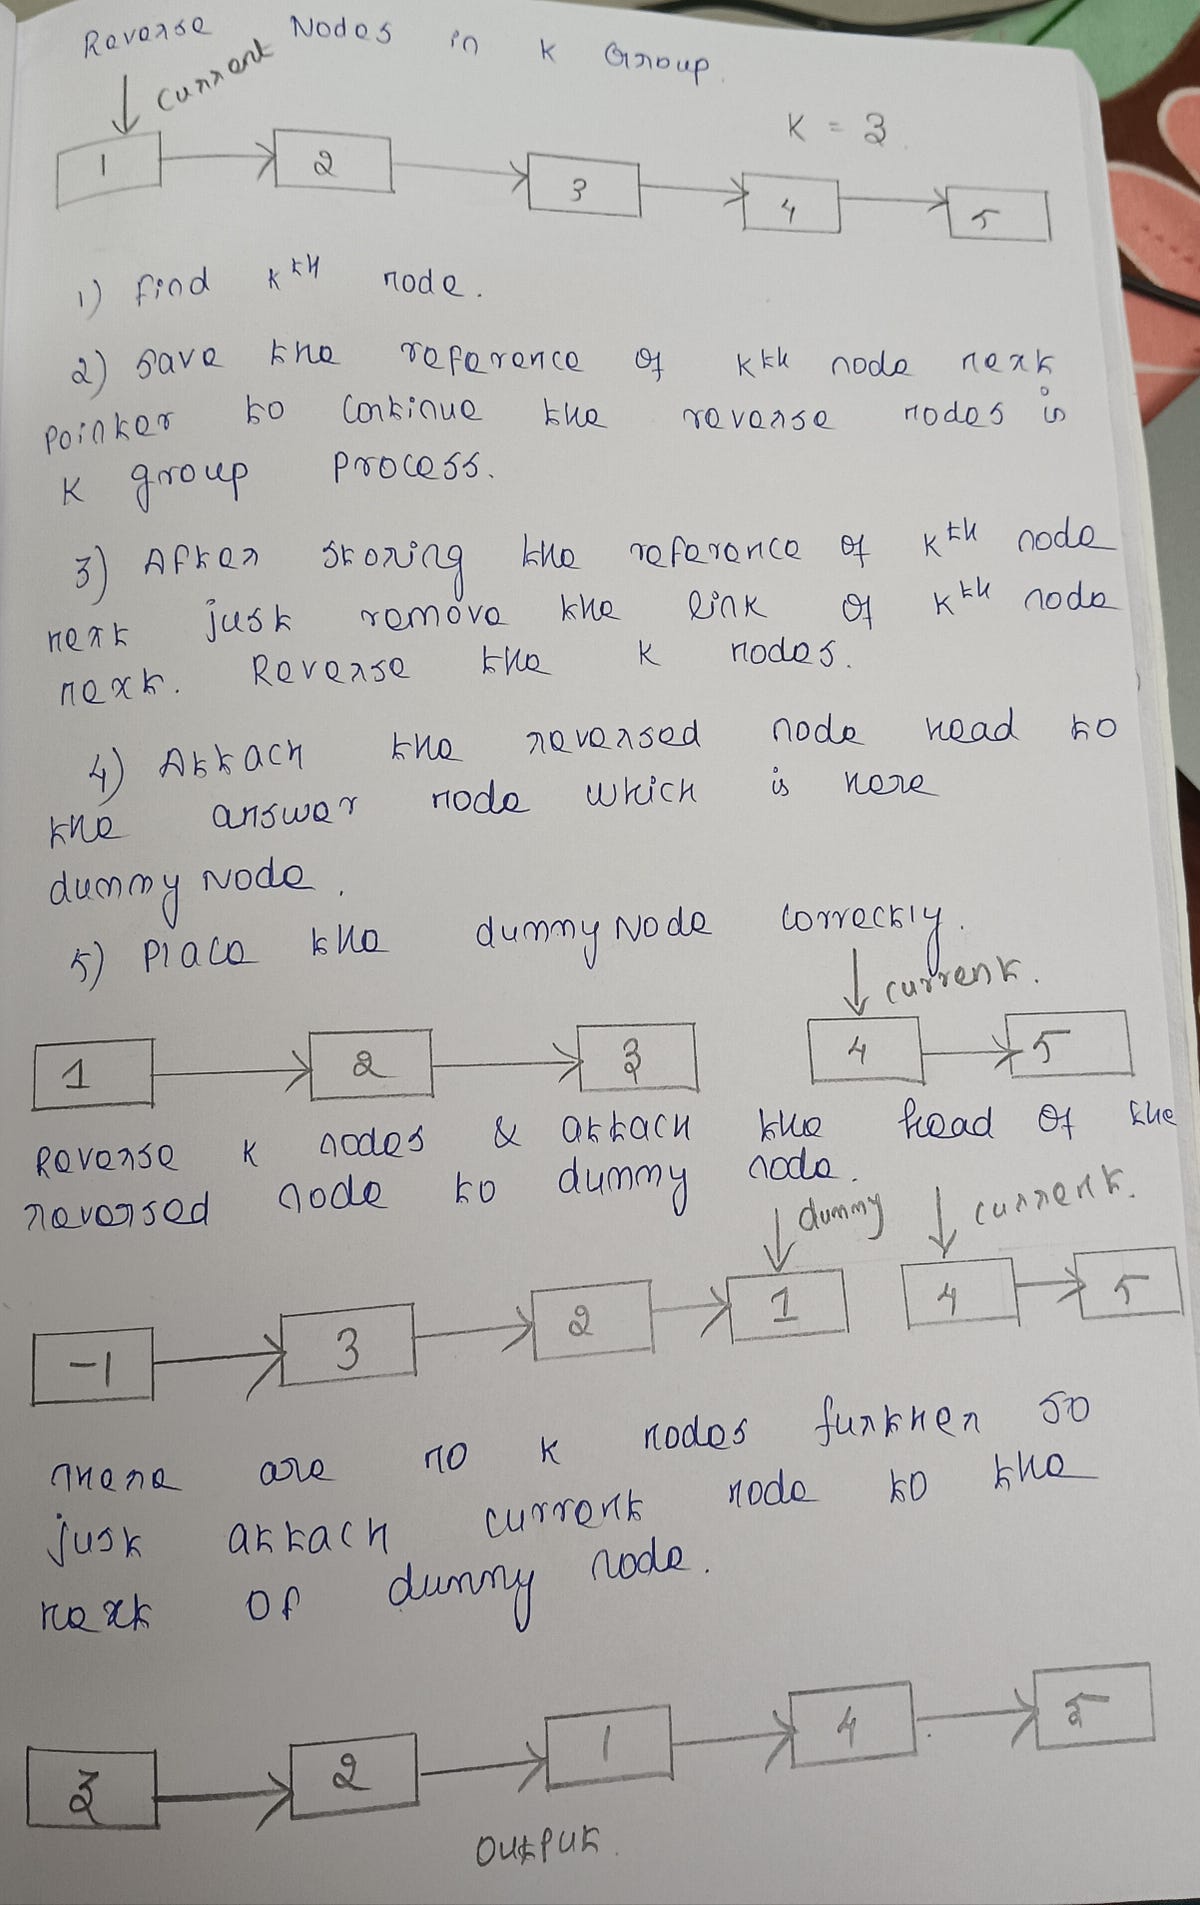 Reverse Nodes in K Group.
current
K = 3.
1 2 3 4 5
1) Find Kth node.
2) Save the reference of Kth node next
pointer to continue the reverse nodes is
K group process.
3) After storing the reference of Kth node
next just remove the link of Kth node
next. Reverse the K nodes.
4) Attach the reversed node head to
the answer node which is here
dummy Node.
5) Place the dummy Node correctly.
current.
1 2 3 4 5
Reverse K nodes & attach the head of the
reversed node to dummy node.
dummy current.
-1 3 2 1 4 5
There are no K nodes further so
just attach current node to the
next of dummy node.
3 2 1 4 5
Output.